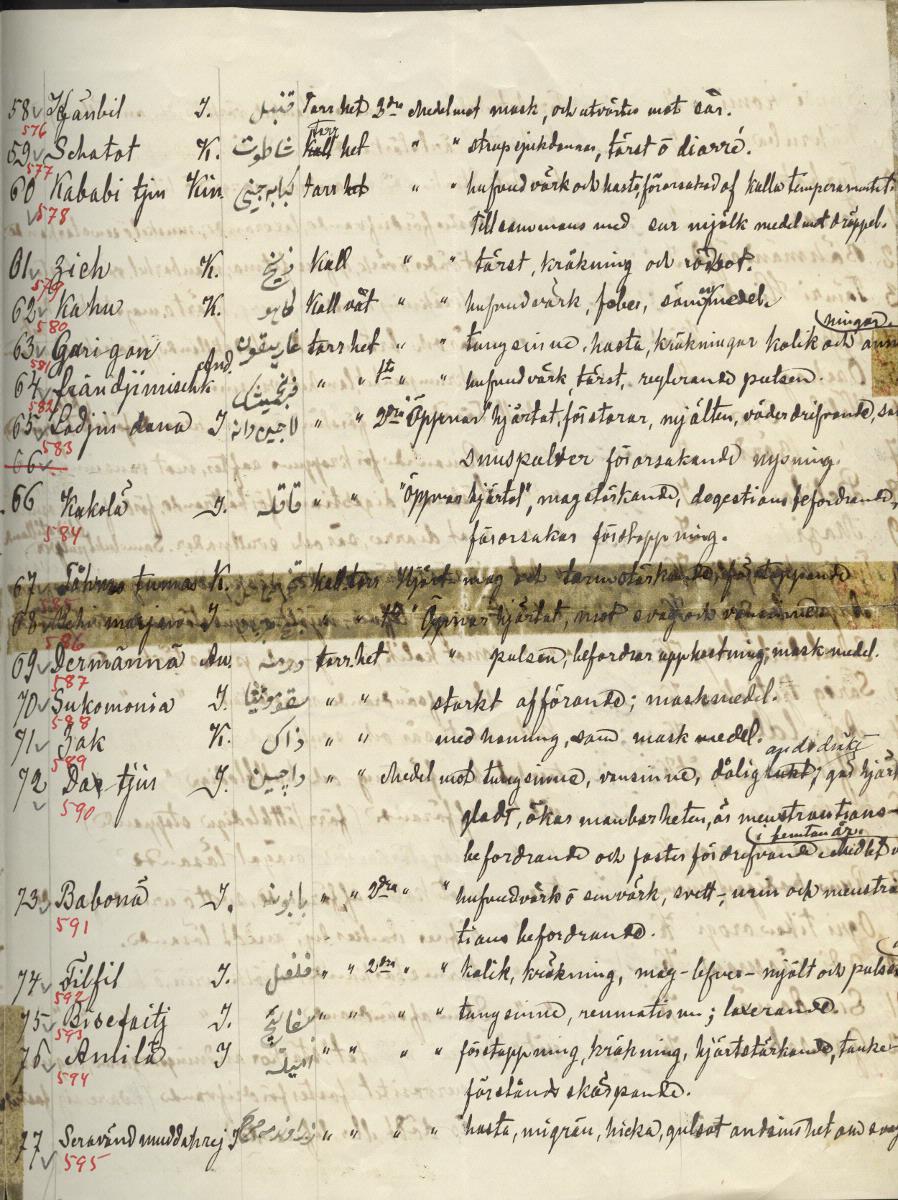 58 Känbil I. قنبل Torr het 2dra Medel mot mask, och utvärtes mot sår.
576
59 Schatot K. شاطوت torr het " " strupsjukdomar, törst o diarré.
577
60 Kababi tjin Kin. کبابه چینی torr het " " hufvudvärk och hosta, förorsakad af kalla temperamentet.
578 Tillsammans med sur mjölk medel mot dröppel.
61 Zich K. Kall " " törst, kräkning och
579
62 Kahu K. کاهو Kall våt " " hufvudvärk, feber, sömnmedel.
580
63 Garigon غاریقون torr het " " tungsinne, hosta, kräkningar kolik och
581 ningar.
64 Frandjimischk Ind. فرنجمشک " " 1sta hufvudvärk törst, reglerande pulsen.
582
65 Ladjin dana I لاجین دانه " " 2dra "Öppnar" hjärtat, förstorar, mjälten, väderdrifvande,
583 Snuspulver förorsakande nysning.
66
66 Kakola I. قاقله " " "Öppnar hjärtat", magstärkande, degestions befordrande,
584 förorsakar förstoppning.
67 K. Kall torr Hjärt mag och tarmstärkande, förstoppande
68 I. " " Öppnar hjärtat, mot svag och vansinne
586
69 Dermänna Au. درمنه torr het " pulsen, befordrar upphostning, maskmedel.
587
70 Sukomonia I. سقمونیا " " starkt afförande; maskmedel.
588
71 Zak K. زاک " " med honung, som mask medel.
589
72 Dar tjin I. دارچین " " Medel mot tungsinne, vansinne, dålig andedräkt, gör
590 gladt, ökar manbarheten, är menstruations-
befordrande och foster fördrifvande
73 Babonä I. بابونه " " 2dra " " hufvudvärk o senvärk, svett-, urin och menstrua
591 tions befordrande.
74 Filfil I. فلفل " " 2dra " " kolik, kräkning, mag- lefver- mjält och
592
75 Bisefaitj I. بسفایج " " " " tungsinne, reumatism; laxerande.
593
76 Amilä I امیله " " " " förstoppning, kräkning, hjärtstärkande, tanke-
594 förstånds skärpande.
77 Seravänd muddahrej I " " " " hosta, migrän, hicka, gulsot
595